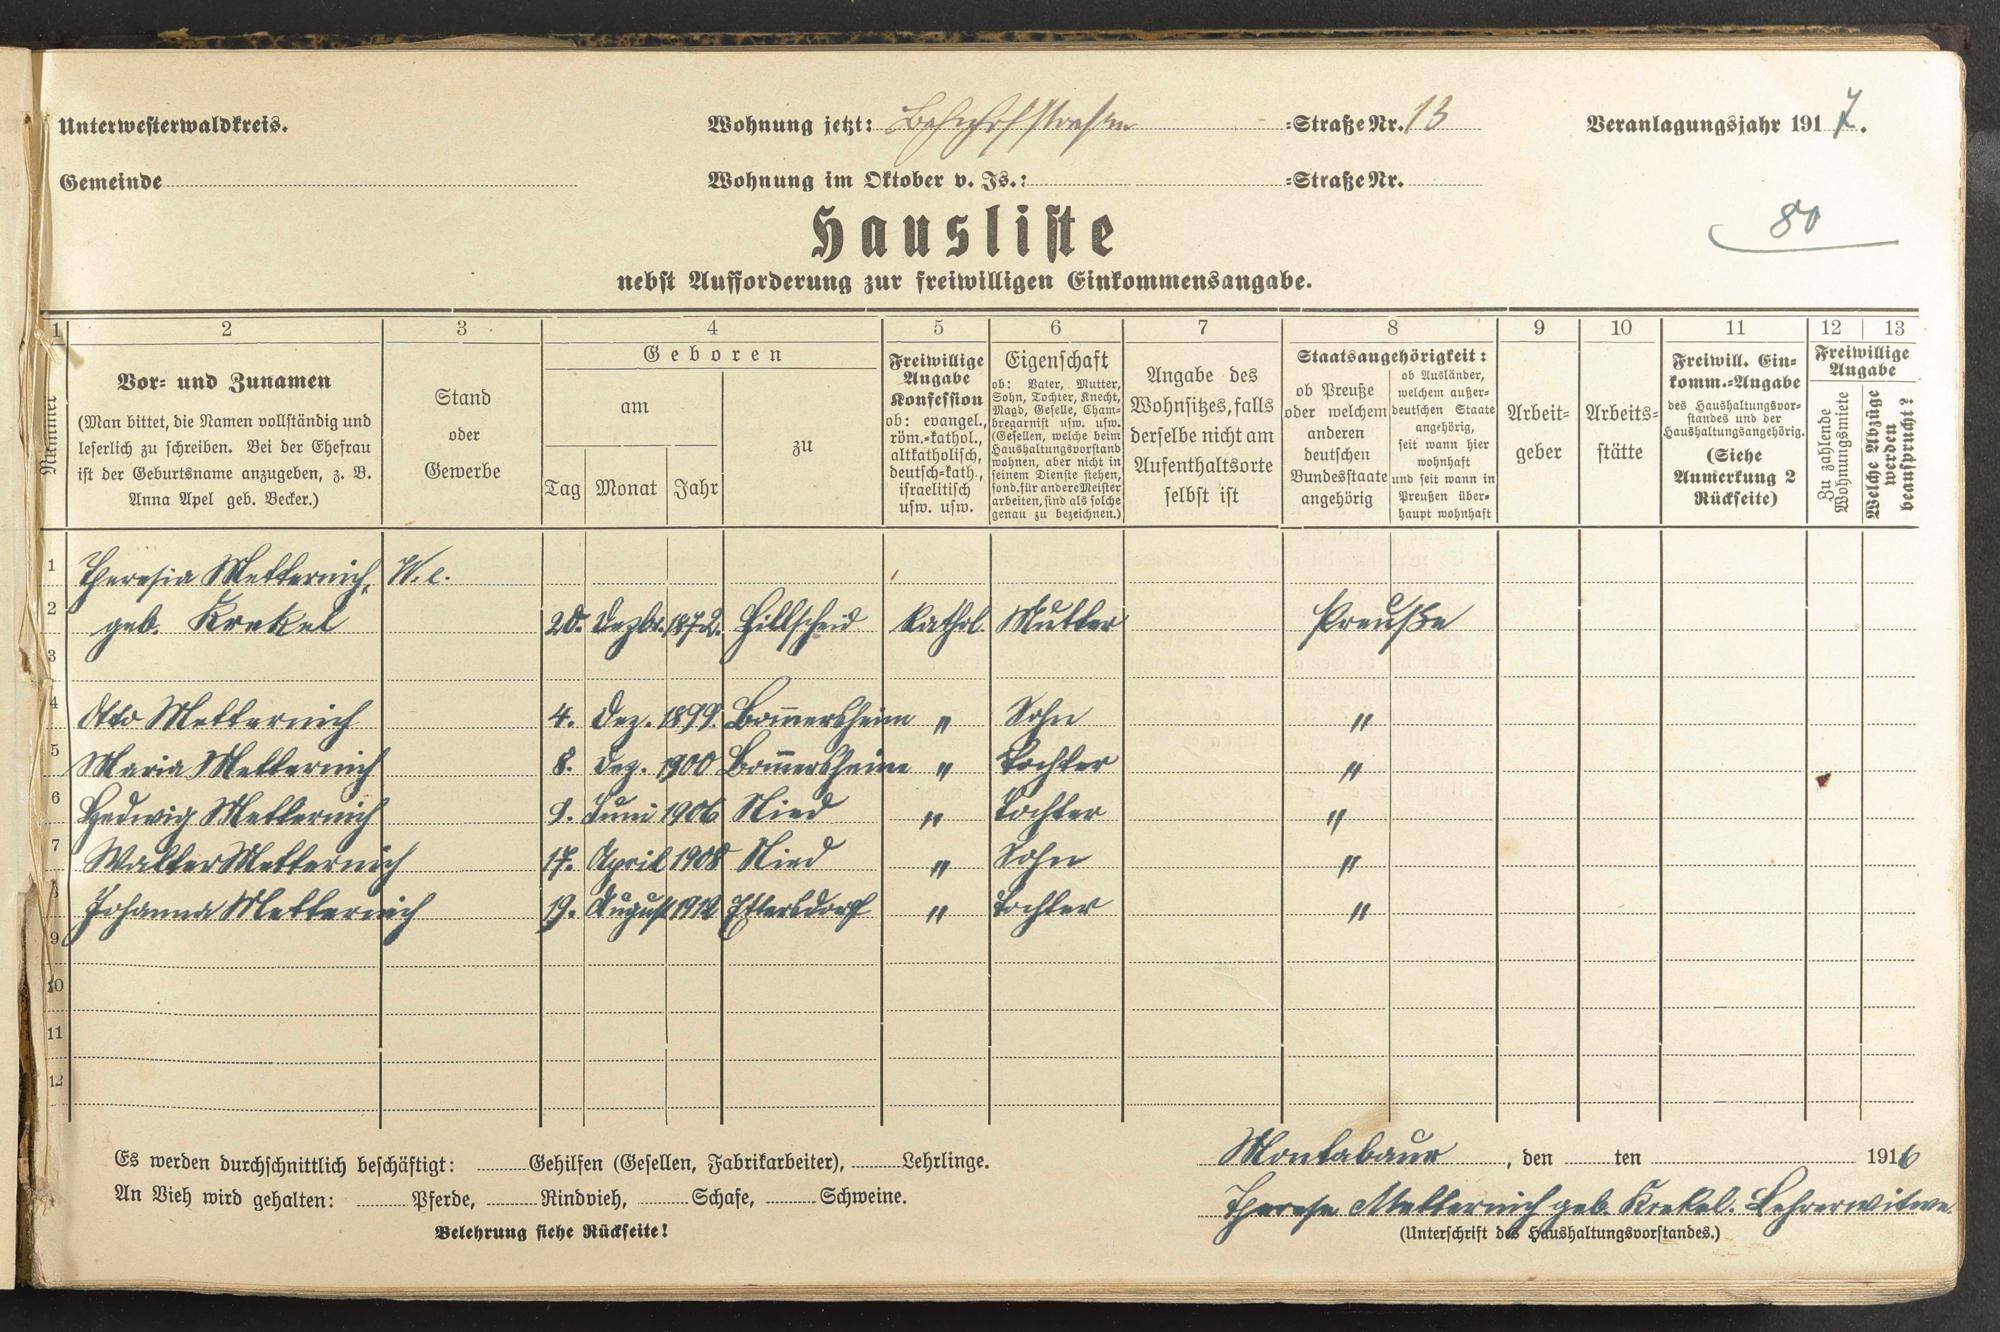 Unterwesterwaldkreis.
Wohnung jetzt: Bahnhofstrassen =Straße Nr. 13
Veranlagungsjahr 1917.
Gemeinde
Wohnung im Oktober v. Js.: =Straße Nr.
80
Hausliste
nebst Aufforderung zur freiwilligen Einkommensangabe.
1 2 3 4 5 6 7 8 9 10 11 12 13
Nummer
Vor= und Zunamen
(Man bittet, die Namen vollständig und
leserlich zu schreiben. Bei der Ehefrau
ist der Geburtsname anzugeben, z. B.
Anna Apel geb. Becker.)
Stand
oder
Gewerbe
Geboren
am
Tag Monat Jahr
zu
Freiwillige
Angabe
Konfession
ob: evangel.,
röm.=kathol.,
altkatholisch,
deutsch=kath.,
israelitisch
usw. usw.
Eigenschaft
ob: Vater, Mutter,
Sohn, Tochter, Knecht,
Magd, Geselle, Cham=
bregarnist usw. usw.
(Gesellen, welche beim
Haushaltungsvorstand
wohnen, aber nicht in
seinem Dienste stehen,
sond. für andere Meister
arbeiten, sind als solche
genau zu bezeichnen.)
Angabe des
Wohnsitzes, falls
derselbe nicht am
Aufenthaltsorte
selbst ist
Staatsangehörigkeit:
ob Preuße
oder welchem
anderen
deutschen
Bundesstaate
angehörig
ob Ausländer,
welchem außer=
deutschen Staate
angehörig,
seit wann hier
wohnhaft
und seit wann in
Preußen über=
haupt wohnhaft
Arbeit=
geber
Arbeits=
stätte
Freiwill. Ein=
komm.=Angabe
des Haushaltungsvor=
standes und der
Haushaltungsangehörig.
(Siehe
Anmerkung 2
Rückseite)
Freiwillige
Angabe
Zu zahlende
Wohnungsmiete
Welche Abzüge
werden
beansprucht?
1 Theresia Metternich, W.e.
2 geb. Krekel 20. Dezbr. 1872. Hillscheid kathol. Mutter Preuße
3
4 Otto Metternich 4. Dez. 1899. Bom̄ersheim " Sohn "
5 Maria Metternich 8. Dez. 1900 Bom̄ersheim " Tochter "
6 Hedwig Metternich 9. Juni 1906 Nied " Tochter "
7 Walter Metternich 17. April 1908 Nied " Sohn "
8 Johanna Metternich 19. August 1912 Ettersdorf " Tochter "
9
10
11
12
Es werden durchschnittlich beschäftigt: Gehilfen (Gesellen, Fabrikarbeiter), Lehrlinge.
An Vieh wird gehalten: Pferde, Rindvieh, Schafe, Schweine.
Belehrung siehe Rückseite!
Montabaur, den ten 1916
Therese Metternich geb. Krekel. Lehrerwitwe.
(Unterschrift des Haushaltungsvorstandes.)